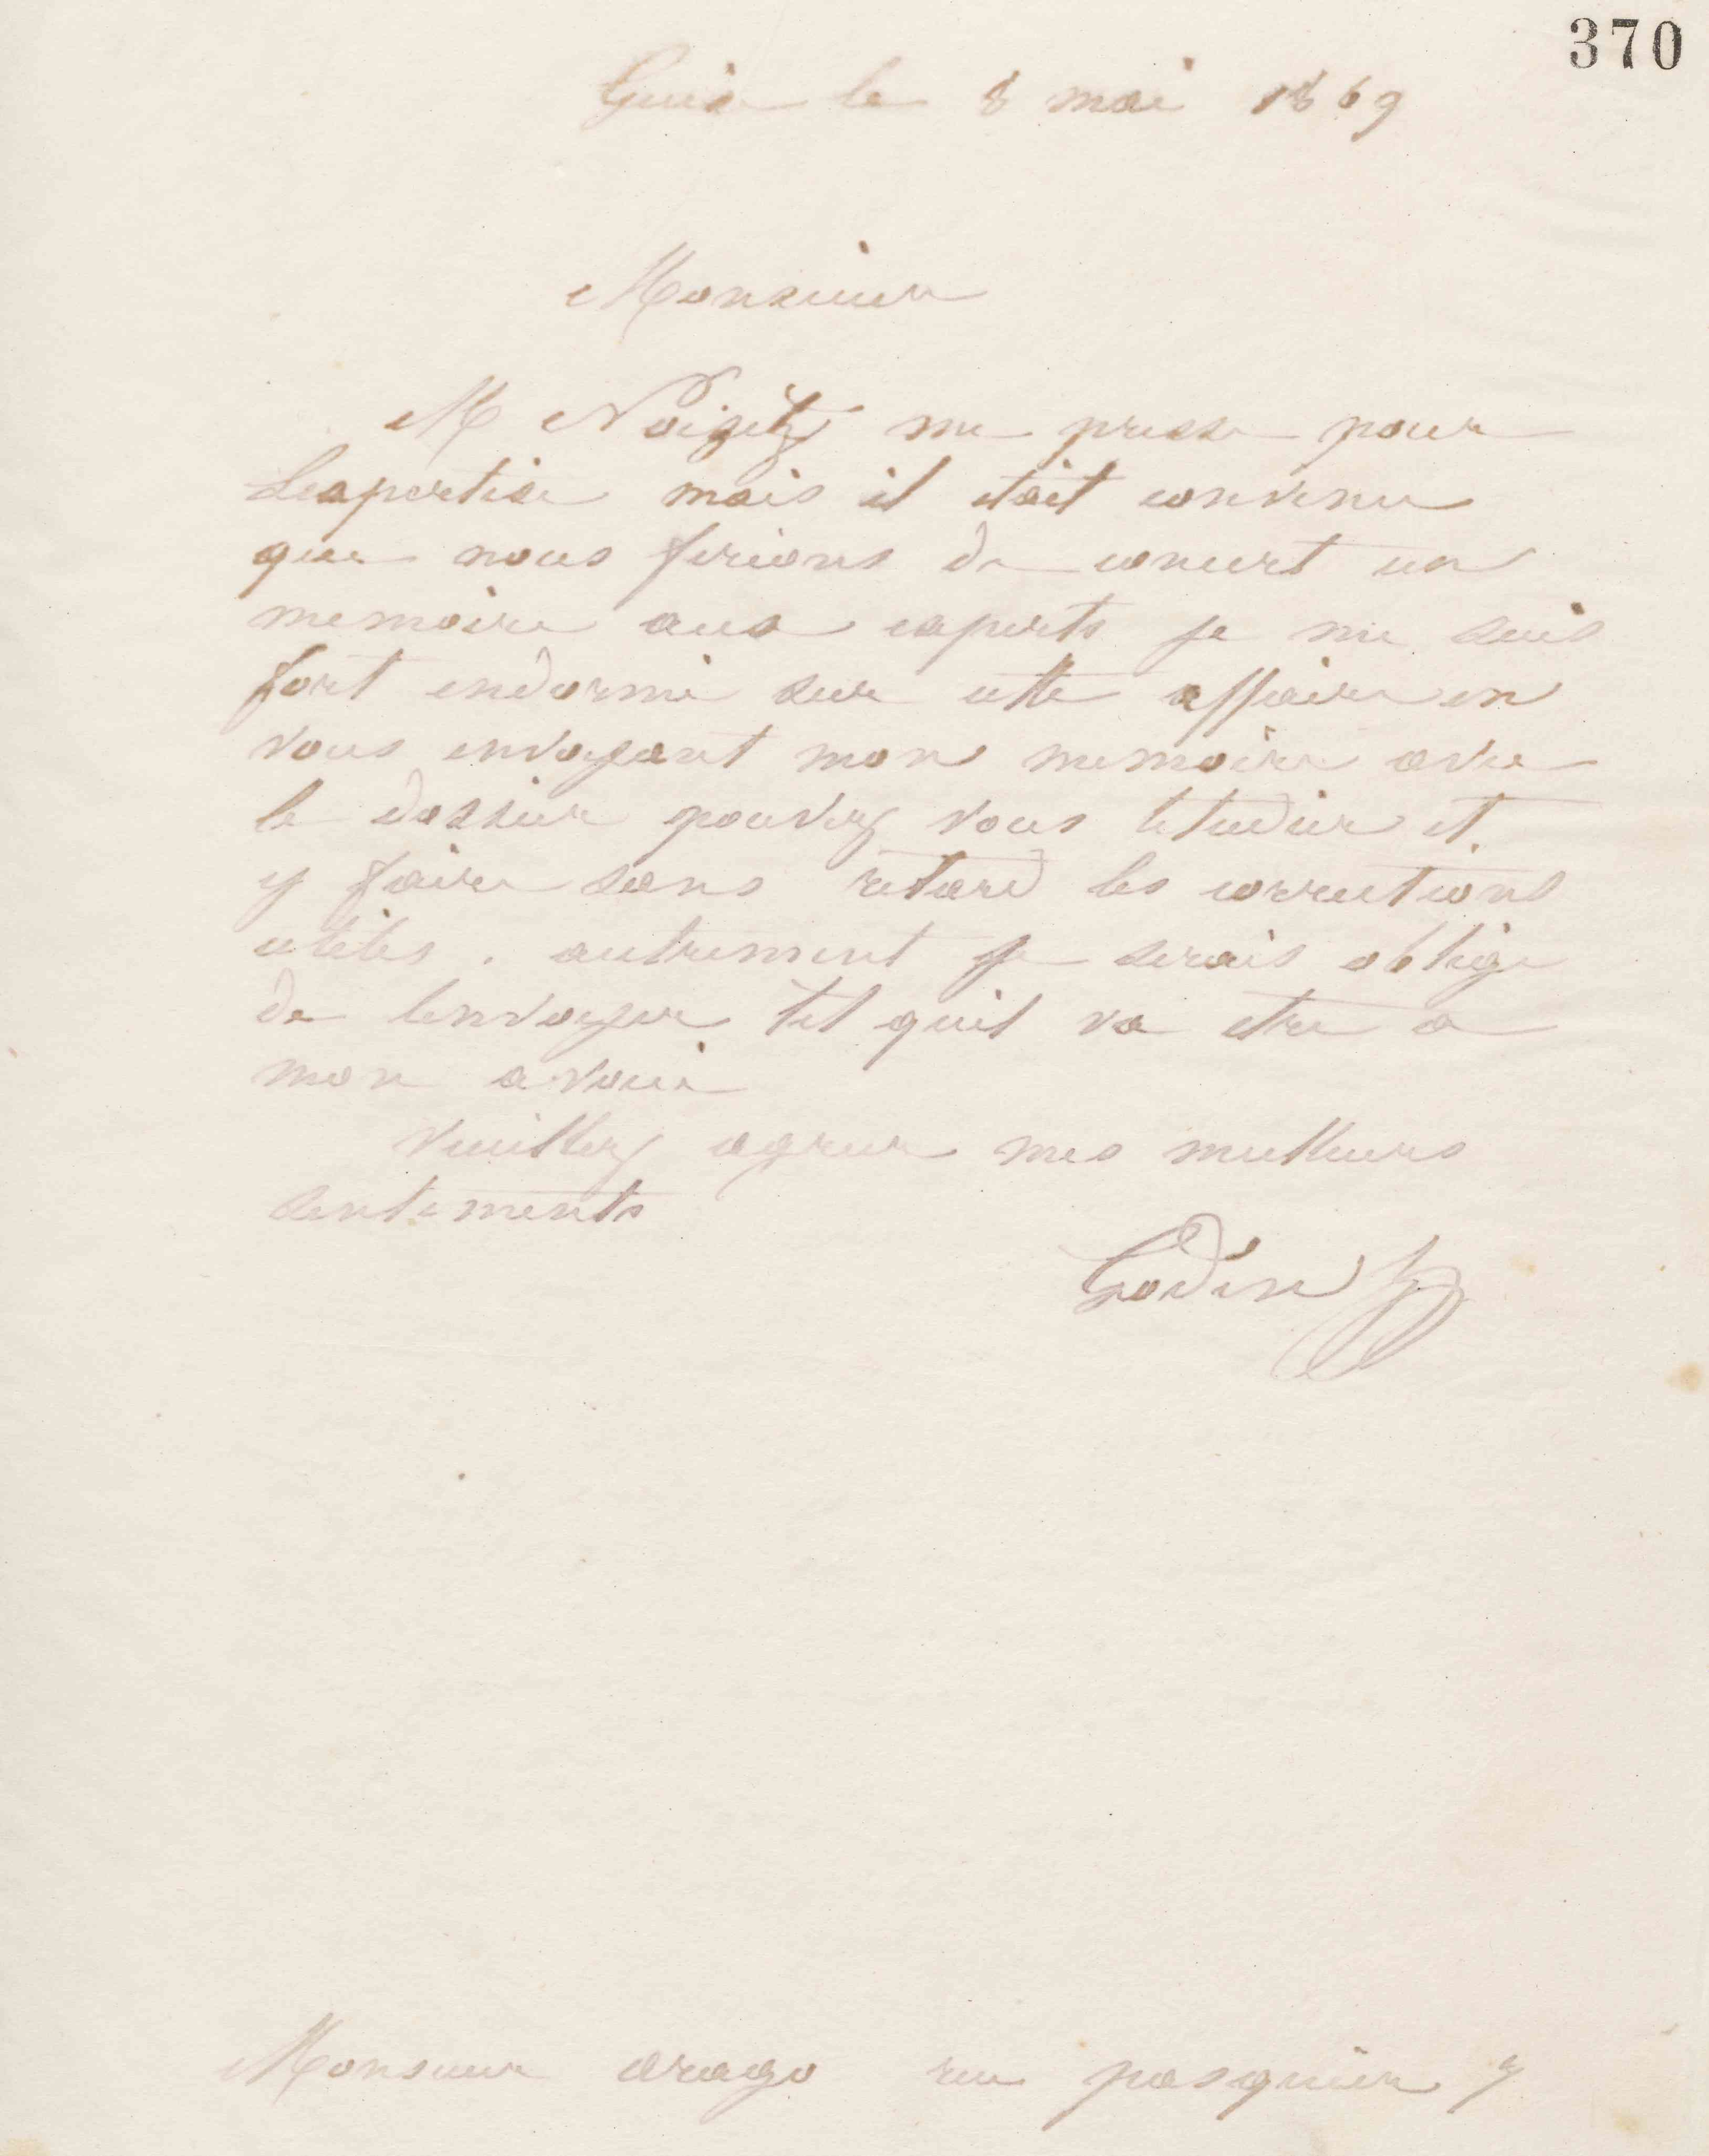 370
Guise le 8 mai 1869
Monsieur
M Noizet me presse pour
Lexpertise mais il etait convenu
que nous ferions de concert un
memoire aux experts je me suis
fort endormi sur cette affaire en
vous envoyant mon memoire avec
le dossier pouvez vous letudier et
y faire sans retard les corrections
utiles . autrement je serais oblige
de lenvoyer tel quil va etre a
mon avoué
veuillez agreer mes meilleurs
sentiments
Godin
Monsieur arago rue pasquier